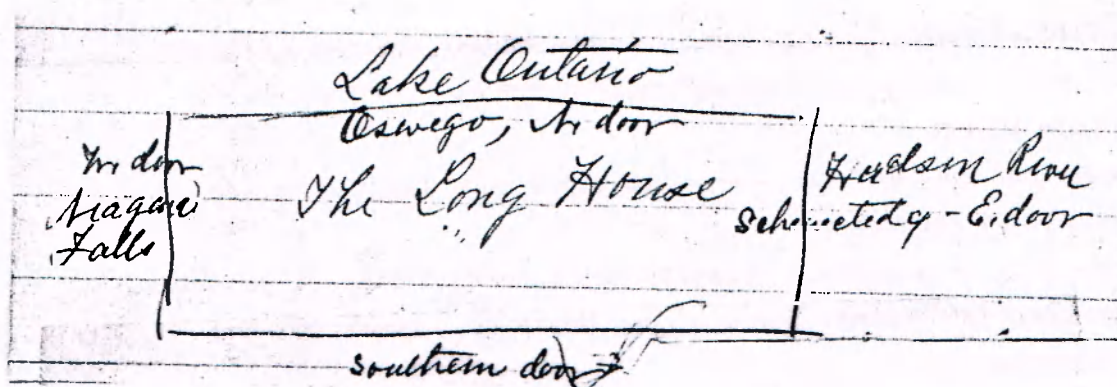 Lake Ontario
Oswego, N. door
W. door
Niagara
Falls
The Long House
Hudson River
Schenectady - E. door
southern door